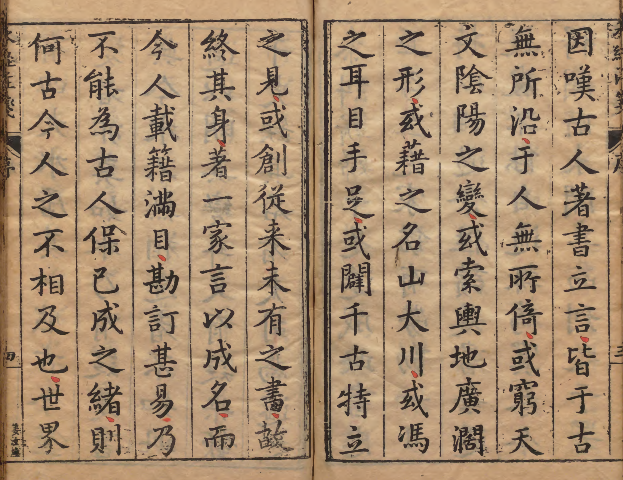 因嘆古人著書立言皆于古
無所沿于人無所倚或窮天
文陰陽之變或索輿地廣濶
之形或藉之名山大川或馮
之耳目手足或闢千古特立
之見或創従来未有之畵故
終其身著一家言以成名而
今人載籍滿目勘訂甚易乃
不能為古人保已成之緒則
何古今人之不相及也世界